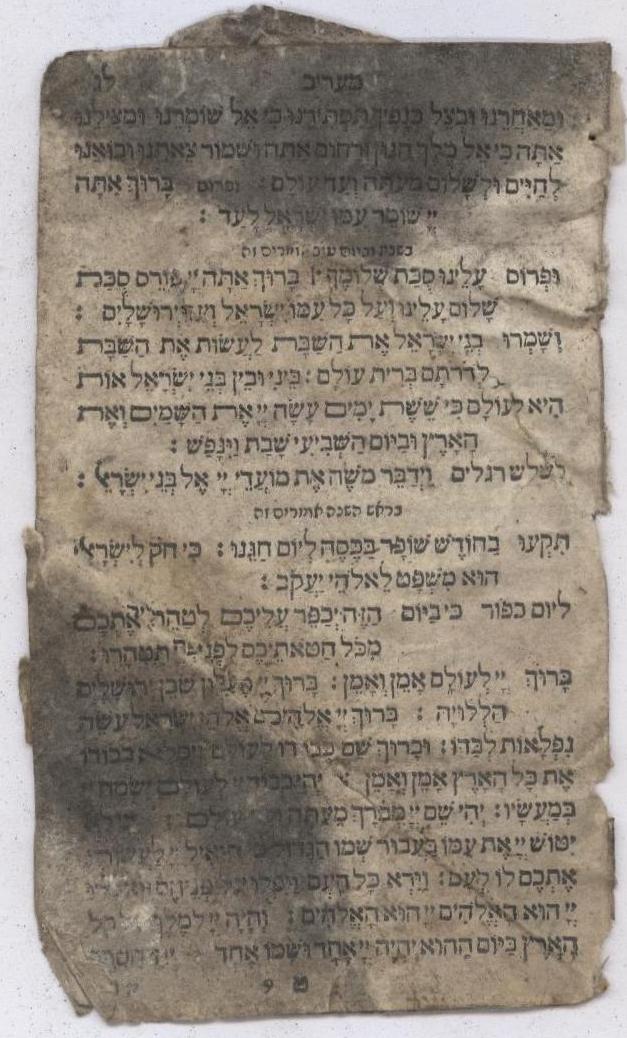 מעריב לג
ומאחרנו ובצל כנפיך תסתירנו כי אל שומרנו ומצילנו
אתה כי אל מלך חנון ורחום אתה ושמור צאתנו ובואנו
לְחַיִּים וּלְשָׁלוֹם מֵעַתָּה וְעַד עוֹלָם : ופרוס בָּרוּךְ אַתָּה
יְיָ שומר עמו ישראל לָעַד :
בשבת וביום טוב אומרים זה
וּפְרוֹס עָלֵינוּ סֻכַּת שְׁלוֹמֶךָ : בָּרוּךְ אַתָּה יְיָ פּוֹרֵס סֻכַּת
שָׁלוֹם עָלֵינוּ וְעַל כָּל עַמּוֹ יִשְׂרָאֵל וְעַל יְרוּשָׁלָיִם :
וְשָׁמְרוּ בְנֵי יִשְׂרָאֵל אֶת הַשַּׁבָּת לַעֲשׂוֹת אֶת הַשַּׁבָּת
לְדֹרֹתָם בְּרִית עוֹלָם : בֵּינִי וּבֵין בְּנֵי יִשְׂרָאֵל אוֹת
הִיא לְעוֹלָם כִּי שֵׁשֶׁת יָמִים עָשָׂה יְיָ אֶת הַשָּׁמַיִם וְאֶת
הָאָרֶץ וּבַיּוֹם הַשְּׁבִיעִי שָׁבַת וַיִּנָּפַשׁ :
לשלש רגלים וַיְדַבֵּר מֹשֶׁה אֶת מוֹעֲדֵי יְיָ אֶל בְּנֵי יִשְׂרָאֵל :
בראש השנה אומרים זה
תִּקְעוּ בַחוֹדֶשׁ שׁוֹפָר בַּכֶּסֶה לְיוֹם חַגֵּנוּ : כִּי חֹק לְיִשְׂרָאֵל
הוּא מִשְׁפָּט לֵאלֹהֵי יַעֲקֹב :
ליום כפור כִּי בַיּוֹם הַזֶּה יְכַפֵּר עֲלֵיכֶם לְטַהֵר אֶתְכֶם
מִכֹּל חַטֹּאתֵיכֶם לִפְנֵי יְיָ תִּטְהָרוּ :
בָּרוּךְ יְיָ לְעוֹלָם אָמֵן וְאָמֵן : בָּרוּךְ יְיָ מִצִּיּוֹן שׁכֵן יְרוּשָׁלַיִם
הַלְלוּיָהּ : בָּרוּךְ יְיָ אֱלֹהִים אֱלֹהֵי יִשְׂרָאֵל עֹשֵׂה
נִפְלָאוֹת לְבַדּוֹ : וּבָרוּךְ שֵׁם כְּבוֹדוֹ לְעוֹלָם וְיִמָּלֵא כְבוֹדוֹ
אֶת כָּל הָאָרֶץ אָמֵן וְאָמֵן : יְהִי כְבוֹד יְיָ לְעוֹלָם יִשְׂמַח יְיָ
בְּמַעֲשָׂיו : יְהִי שֵׁם יְיָ מְבֹרָךְ מֵעַתָּה עוֹלָם :
יִטּוֹשׁ יְיָ אֶת עַמּוֹ בַּעֲבוּר שְׁמוֹ הַגָּדוֹל כִּי הוֹאִיל יְיָ לַעֲשׂוֹת
אֶתְכֶם לוֹ לְעָם : וַיַּרְא כָּל הָעָם וַיִּפְּלוּ עַל פְּנֵיהֶם וַיֹּאמְרוּ
יְיָ הוּא הָאֱלֹהִים יְיָ הוּא הָאֱלֹהִים : וְהָיָה יְיָ לְמֶלֶךְ עַל כָּל
הָאָרֶץ בַּיּוֹם הַהוּא יִהְיֶה יְיָ אֶחָד וּשְׁמוֹ אֶחָד
ט 9